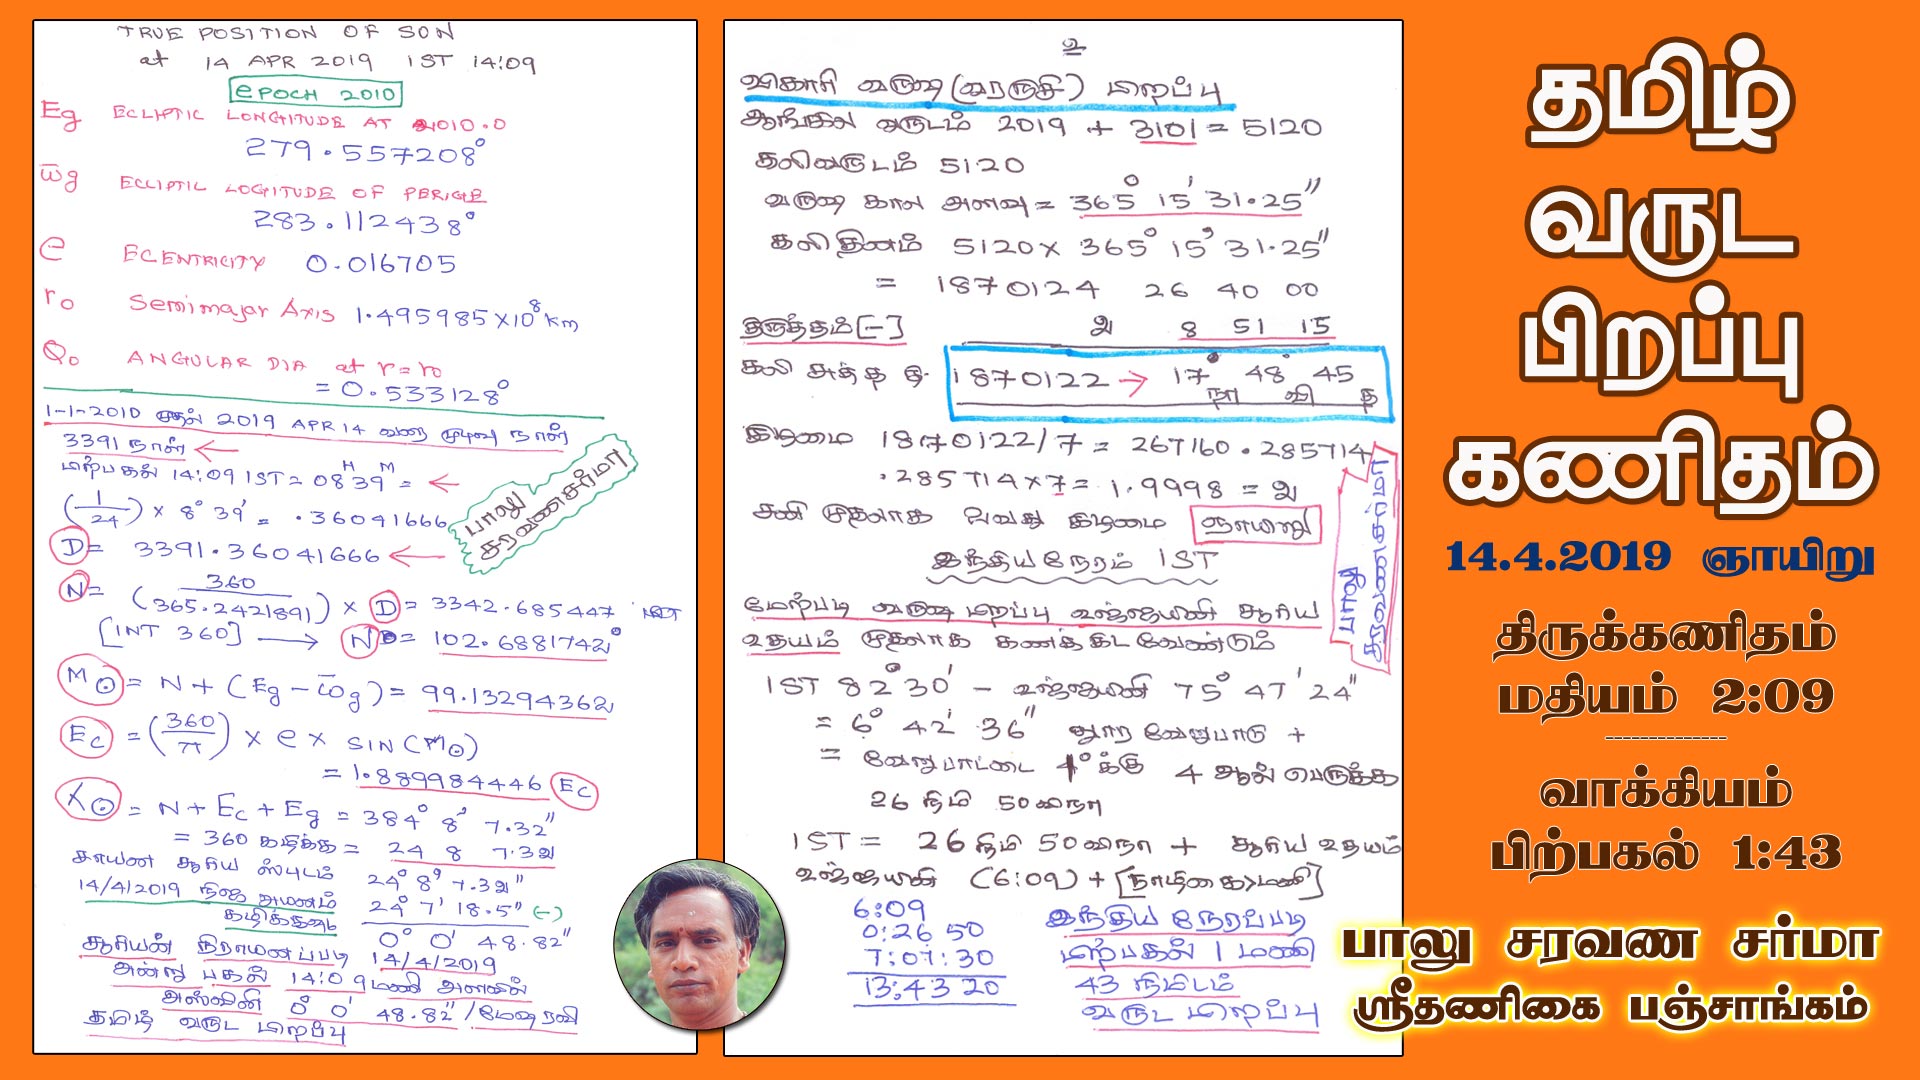 TRUE POSITION OF SON
at 14 APR 2019 IST 14:09
EPOCH 2010
Eg ECLIPTIC LONGITUDE AT 2010.0
279.557208°
ω̅g ECLIPTIC LOGITUDE OF PERIGE
283.112438°
e ECENTRICITY 0.016705
r₀ Semimajor Axis 1.495985×10⁸ Km
Q₀ ANGULAR DIA at r=r₀
= 0.533128°
1-1-2010 முதல் 2019 APR 14 வரை முடிவு நாள்
3391 நாள் ←
பிற்பகல் 14:09 IST = 08ᴴ 39ᴹ = ←
(1/24) × 8° 39' = .36041666
பாலு
சரவணசர்மா
D = 3391.36041666 ←
N = (360/365.2421891) × D = 3342.685447
[INT 360] → N = 102.6881742°
M☉ = N + (Eg - ω̅g) = 99.13294362
Ec = (360/π) × e × SIN(M☉)
= 1.889984446 Ec
λ☉ = N + Ec + Eg = 384° 8' 7.32"
= 360 கழிக்க = 24 8 7.32
சாயன சூரிய ஸ்புடம் 24° 8' 7.32"
14/4/2019 நிஜ அயனம் 24° 7' 18.5" (-)
கழிக்க
0° 0' 48.82"
சூரியன் நிராயனப்படி 14/4/2019
அன்று பகல் 14:09 மணி அளவில்
அஸ்வினி 0° 0' 48.82" / மேஷ ரவி
தமிழ் வருட பிறப்பு
உ
விகாரி வருஷ (வரருசி) பிறப்பு
ஆங்கில வருடம் 2019 + 3101 = 5120
கலிவருடம் 5120
வருஷ கால அளவு = 365° 15' 31.25"
கலி தினம் 5120 × 365° 15' 31.25"
= 1870124 26 40 00
திருத்தம் [-] 2 8 51 15
கலி சுத்த தி 1870122 → 17° 48' 45
நா வி த
கிழமை 1870122/7 = 267160.285714
.285714 × 7 = 1.9998 = 2
சனி முதலாக 2வது கிழமை ஞாயிறு
இந்திய நேரம் IST
மேற்படி வருஷ பிறப்பு உஜ்ஜயினி சூரிய
உதயம் முதலாக கணக்கிட வேண்டும்
IST 82° 30' - உஜ்ஜயினி 75° 47' 24"
= 6° 42' 36" தூர வேறுபாடு +
= வேறுபாட்டை 1°க்கு 4 ஆல் பெருக்க
26 நிமி 50 வினா
IST = 26 நிமி 50 வினா + சூரிய உதயம்
உஜ்ஜயினி (6:09) + [நாழிகை>மணி]
6:09
0:26 50
7:07:30
13:43 20
இந்திய நேரப்படி
பிற்பகல் 1 மணி
43 நிமிடம்
வருட பிறப்பு
தமிழ்
வருட
பிறப்பு
கணிதம்
14.4.2019 ஞாயிறு
திருக்கணிதம்
மதியம் 2:09
--------------
வாக்கியம்
பிற்பகல் 1:43
பாலு சரவண சர்மா
ஸ்ரீதணிகை பஞ்சாங்கம்